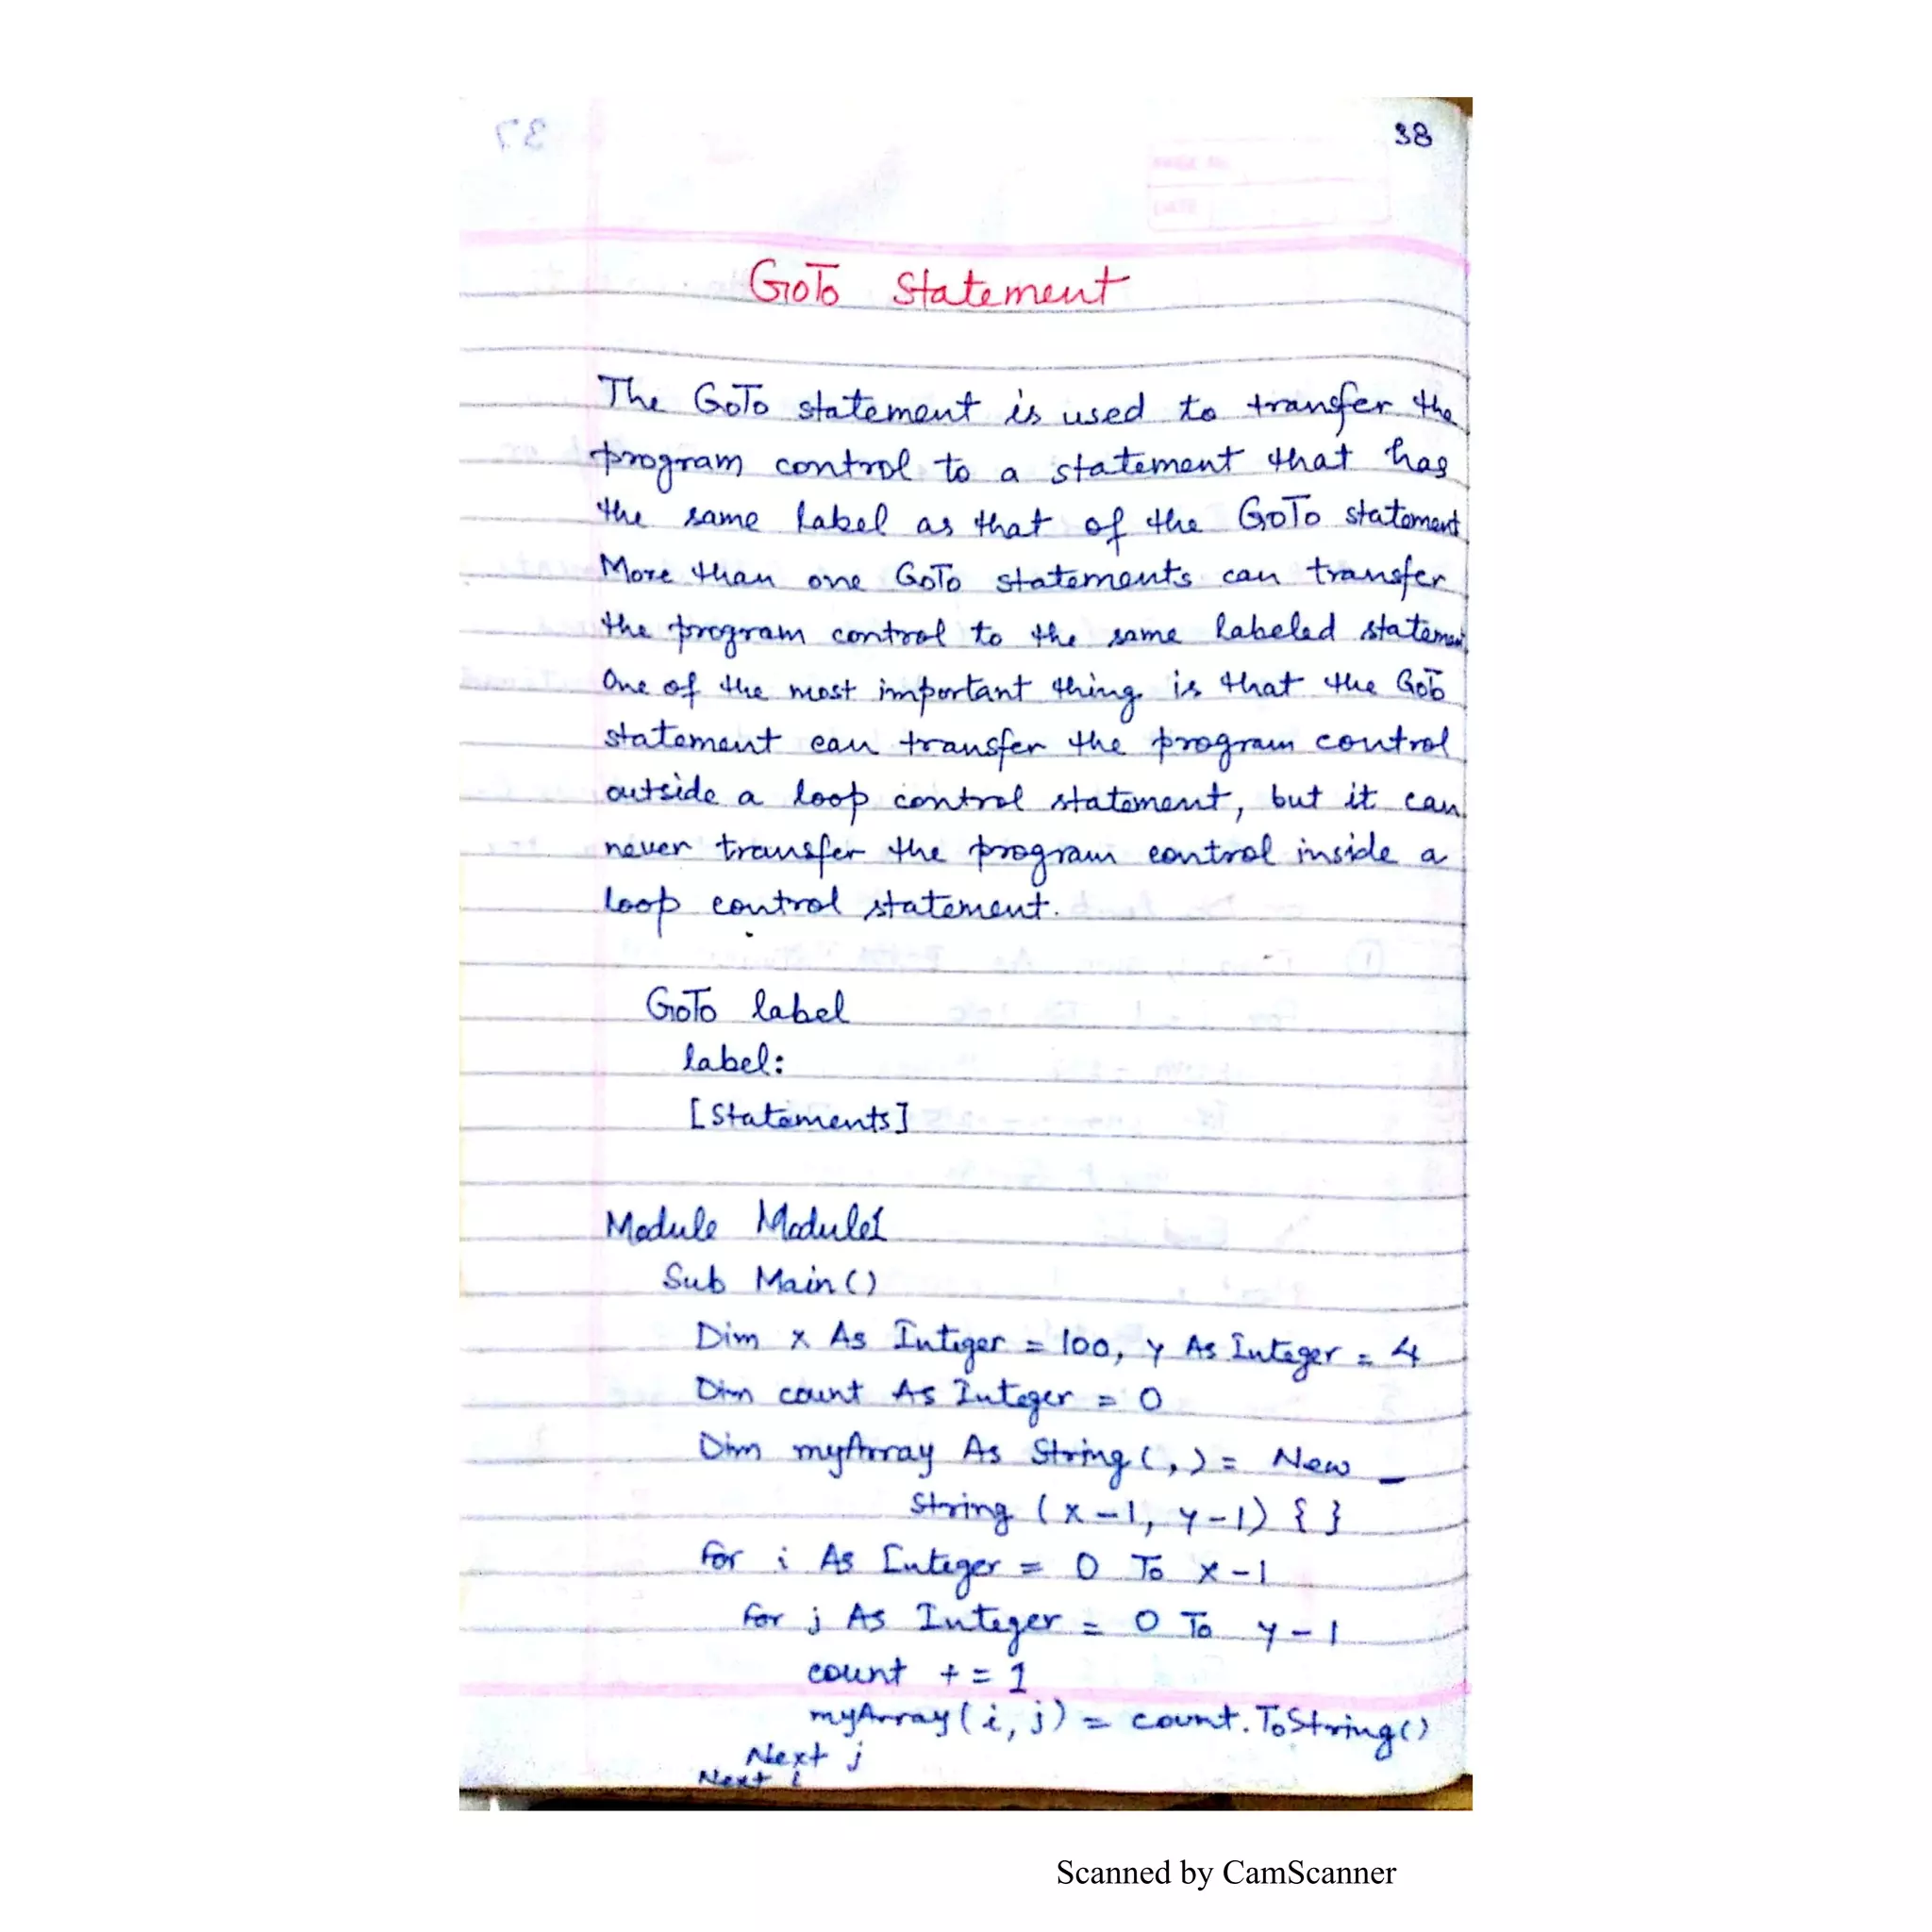 38
GoTo Statement
The GoTo statement is used to transfer the
program control to a statement that has
the same label as that of the GoTo statement
More than one GoTo statements can transfer
the program control to the same labeled statement
One of the most important thing is that the GoTo
statement can transfer the program control
outside a loop control statement, but it can
never transfer the program control inside a
loop control statement.
GoTo label
label:
[Statements]
Module Module1
Sub Main()
Dim x As Integer = 100, y As Integer = 4
Dim count As Integer = 0
Dim myArray As String(,) = New _
String (x-1, y-1) { }
For i As Integer = 0 To x-1
For j As Integer = 0 To y-1
count += 1
myArray(i, j) = count.ToString()
Next j
Next i
Scanned by CamScanner